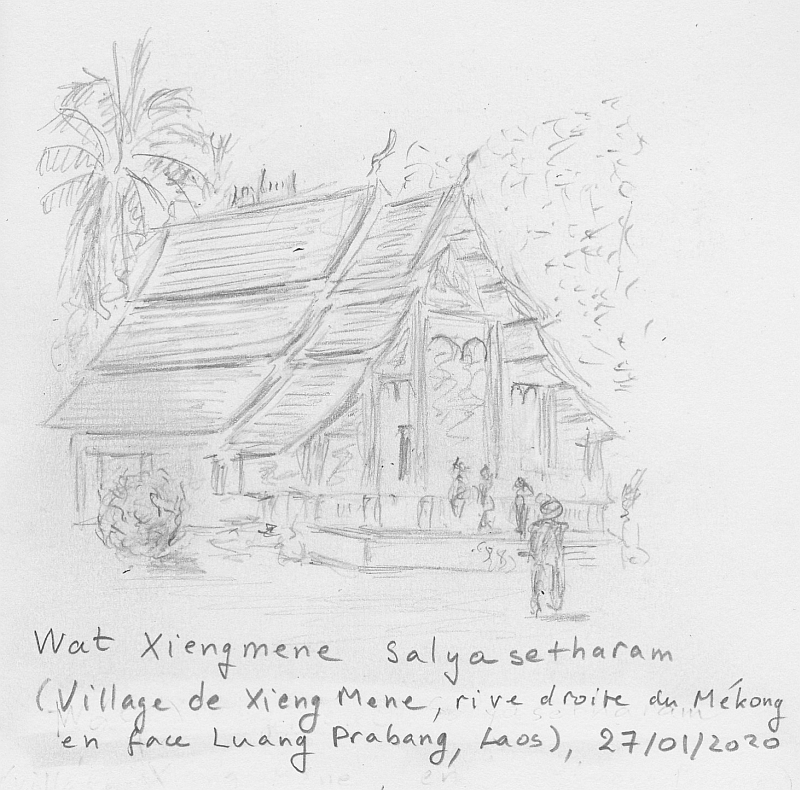 Wat Xiengmene Salyasetharam
(Village de Xieng Mene, rive droite du Mékong
en face Luang Prabang, Laos), 27/01/2020